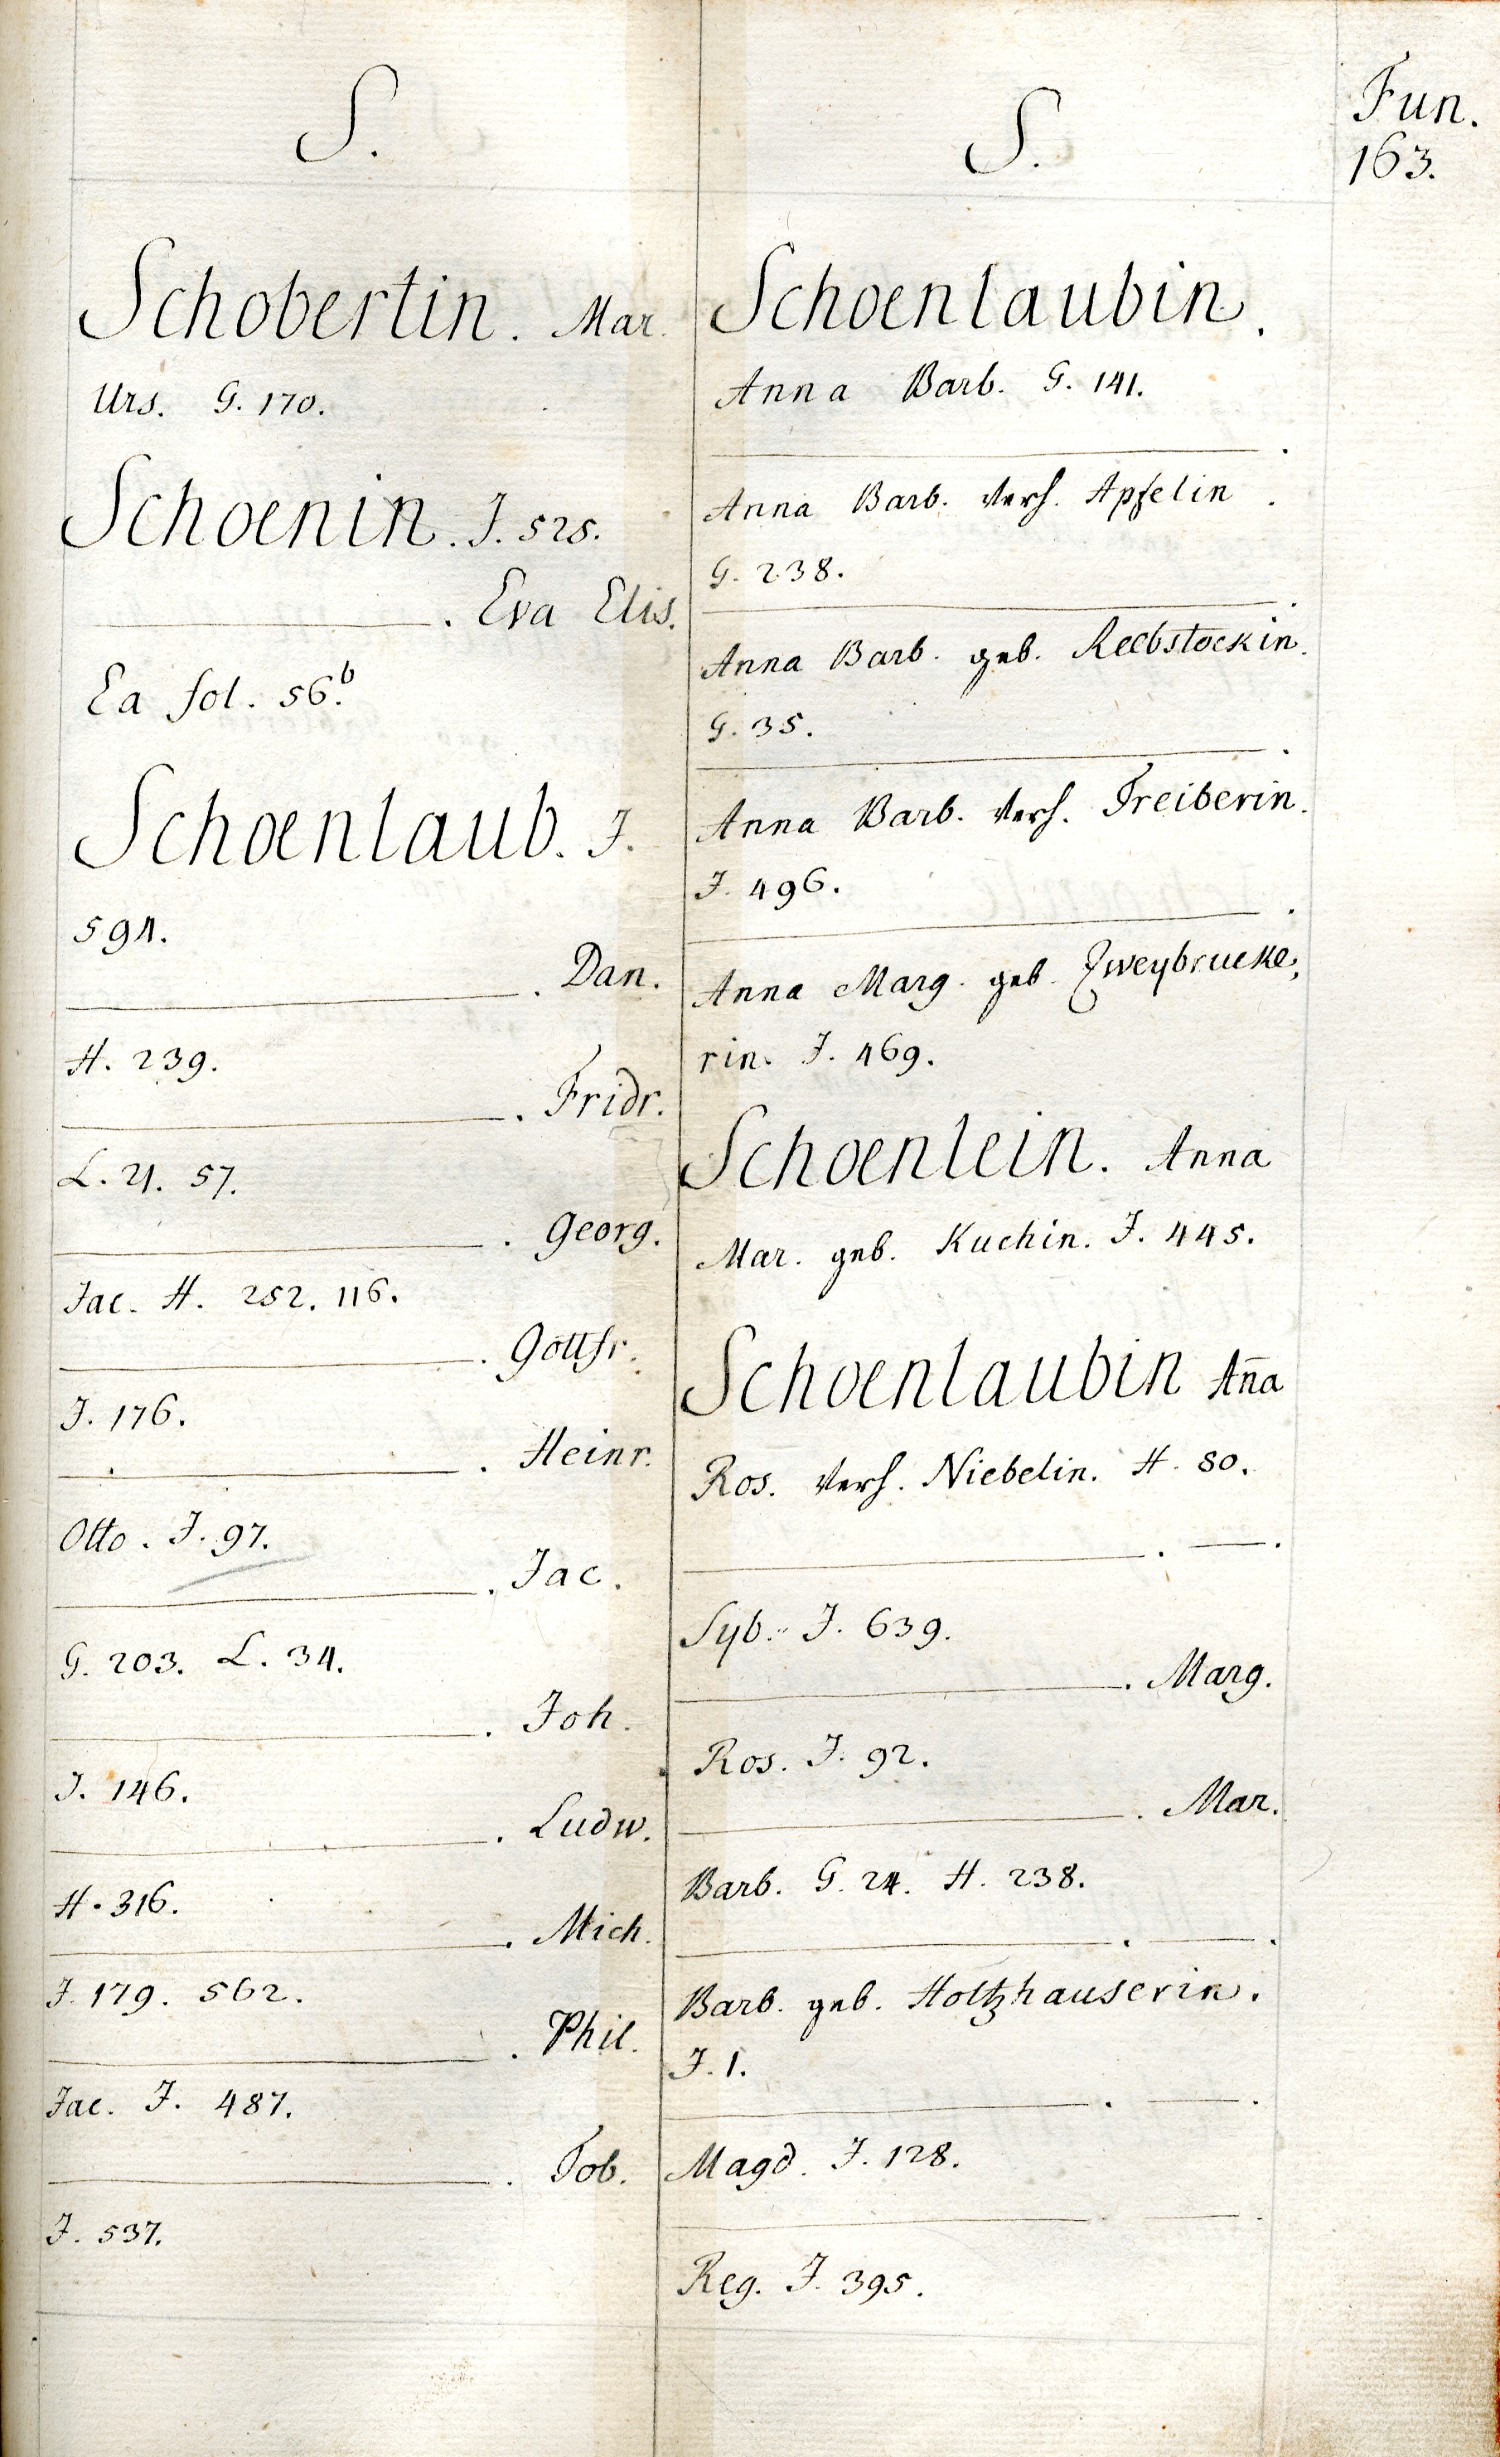 Fun.
163.
S.
Schobertin. Mar.
Urs. G. 170.
Schoenin. J. 525.
. Eva Elis.
Ea fol. 56.b
Schoenlaub. J.
594.
. Dan.
H. 239.
. Fridr.
L. 21. 57.
. Georg.
Jac. H. 252. 116.
. Gottfr.
J. 176.
. Heinr.
Otto. J. 97.
. Jac.
G. 203. L. 34.
. Joh.
J. 146.
. Ludw.
H. 316.
. Mich.
J. 179. 562.
. Phil.
Jac. J. 487.
. Tob.
J. 537.
S.
Schoenlaubin.
Anna Barb. G. 141.
Anna Barb. verh. Apfelin.
G. 238.
Anna Barb. geb. Reebstockin.
G. 35.
Anna Barb. verh. Treiberin.
J. 496.
Anna Marg. geb. Zweybrucke,
rin. J. 469.
Schoenlein. Anna
Mar. geb. Kuchin. J. 445.
Schoenlaubin Aña
Ros. verh. Niebelin. H. 80.
. — .
Syb. J. 639.
. Marg.
Ros. J. 92.
. Mar.
Barb. G. 24. H. 238.
. — .
Barb. geb. Holtzhauserin.
J. 1.
. — .
Magd. J. 128.
. — .
Reg. J. 395.